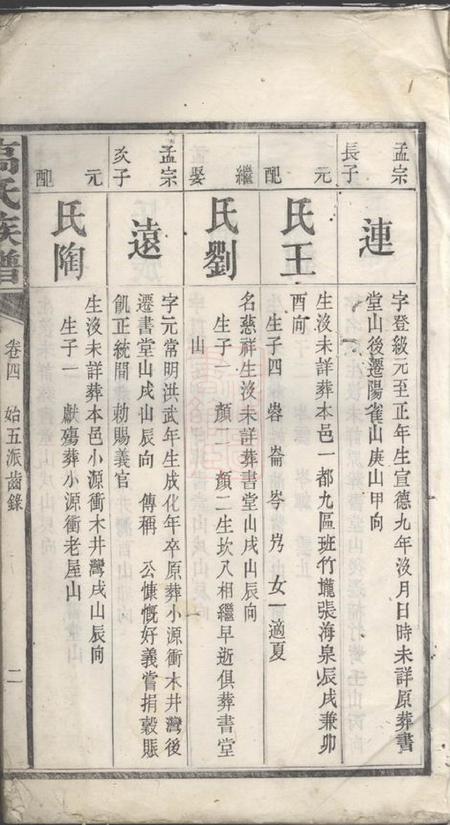 孟宗長子
連
字登級元至正年生宣德九年沒月日時未詳原葬書
堂山後遷陽雀山庚山甲向
元配
氏王
生沒未詳葬本邑一都九區班竹壠張海泉辰戌兼卯
酉向
生子四 礐 崙 岑 屴 女一適夏
繼娶
氏劉
名慈祥生沒未詳葬書堂山戌山辰向
生子二 顏一 顏二生坎入相繼早逝俱葬書堂
山
孟宗次子
遠
字元常明洪武年生成化年卒原葬小源衝木井灣後
遷書堂山戌山辰向 傳稱 公慷慨好義嘗捐穀賑
飢正統間 勅賜義官
元配
氏陶
生沒未詳葬本邑小源衝木井灣戌山辰向
生子一 獻 殤葬小源衝老屋山
高氏族譜
卷四 始五派齒錄
二